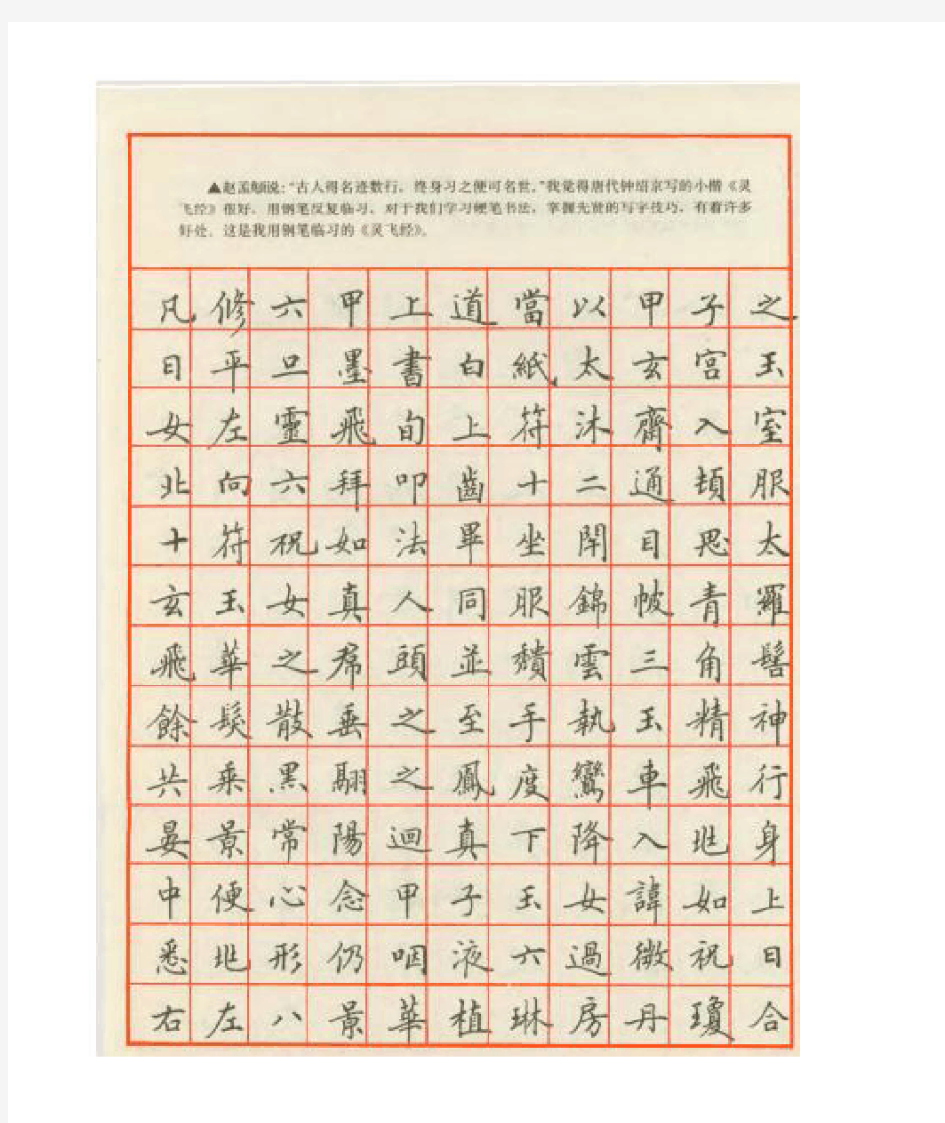 ▲赵孟頫说：“古人得名迹数行，终身习之便可名世。”我觉得唐代钟绍京写的小楷《灵
飞经》很好，用钢笔反复临习，对于我们学习硬笔书法，掌握先贤的写字技巧，有着许多
好处。这是我用钢笔临习的《灵飞经》。
凡修六甲上道當以甲子之
日平旦墨書白紙太玄宮玉
女左靈飛旬上符沐齋入室
北向六拜叩齒十二通頓服
十符祝如法畢坐閇目思太
玄玉女真人同服錦帔青羅
飛華之帬頭並穨雲三角髻
餘髮散垂之至手執玉精神
共乘黑翮之鳳度鸞車飛行
晏景常陽迴真下降入兆身
中便心念甲子玉女諱如上
悉兆形仍咽液六過微祝曰
右左八景華植琳房丹瓊合